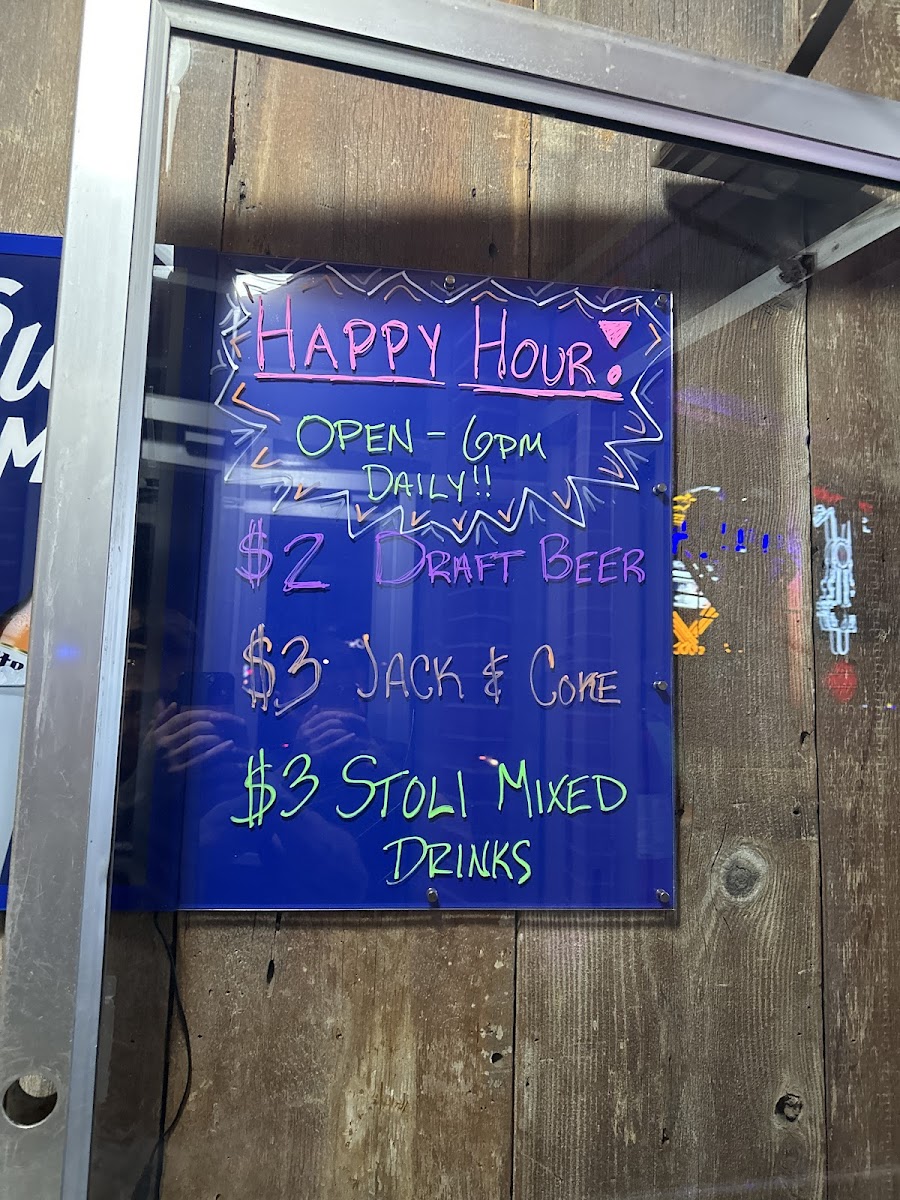 HAPPY HOUR!
OPEN - 6PM
DAILY!!
$2 DRAFT BEER
$3 JACK & COKE
$3 STOLI MIXED
DRINKS